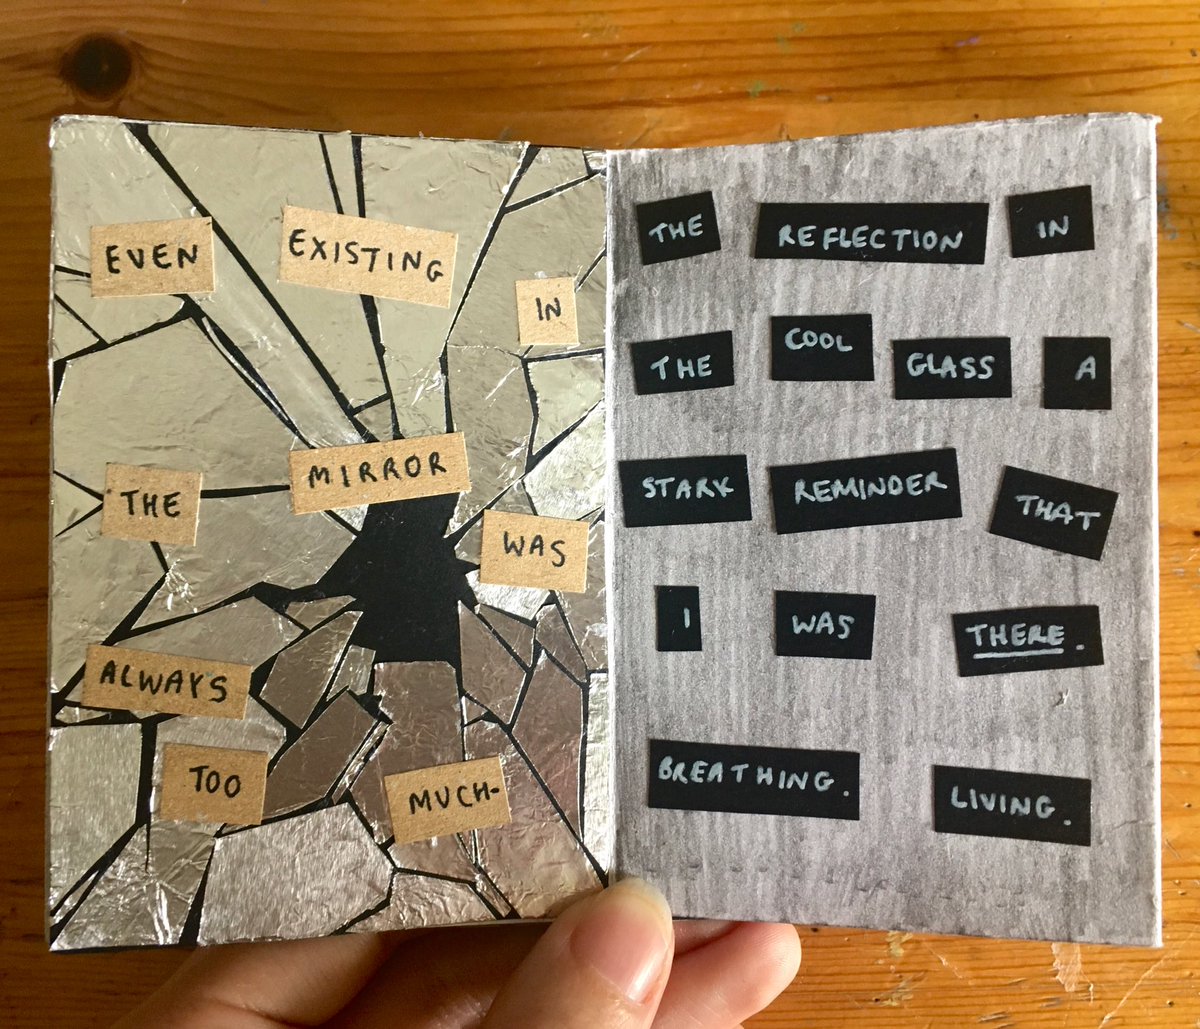 EVEN EXISTING IN
THE MIRROR WAS
ALWAYS
TOO MUCH-
THE REFLECTION IN
THE COOL GLASS A
STARK REMINDER THAT
I WAS THERE.
BREATHING. LIVING.